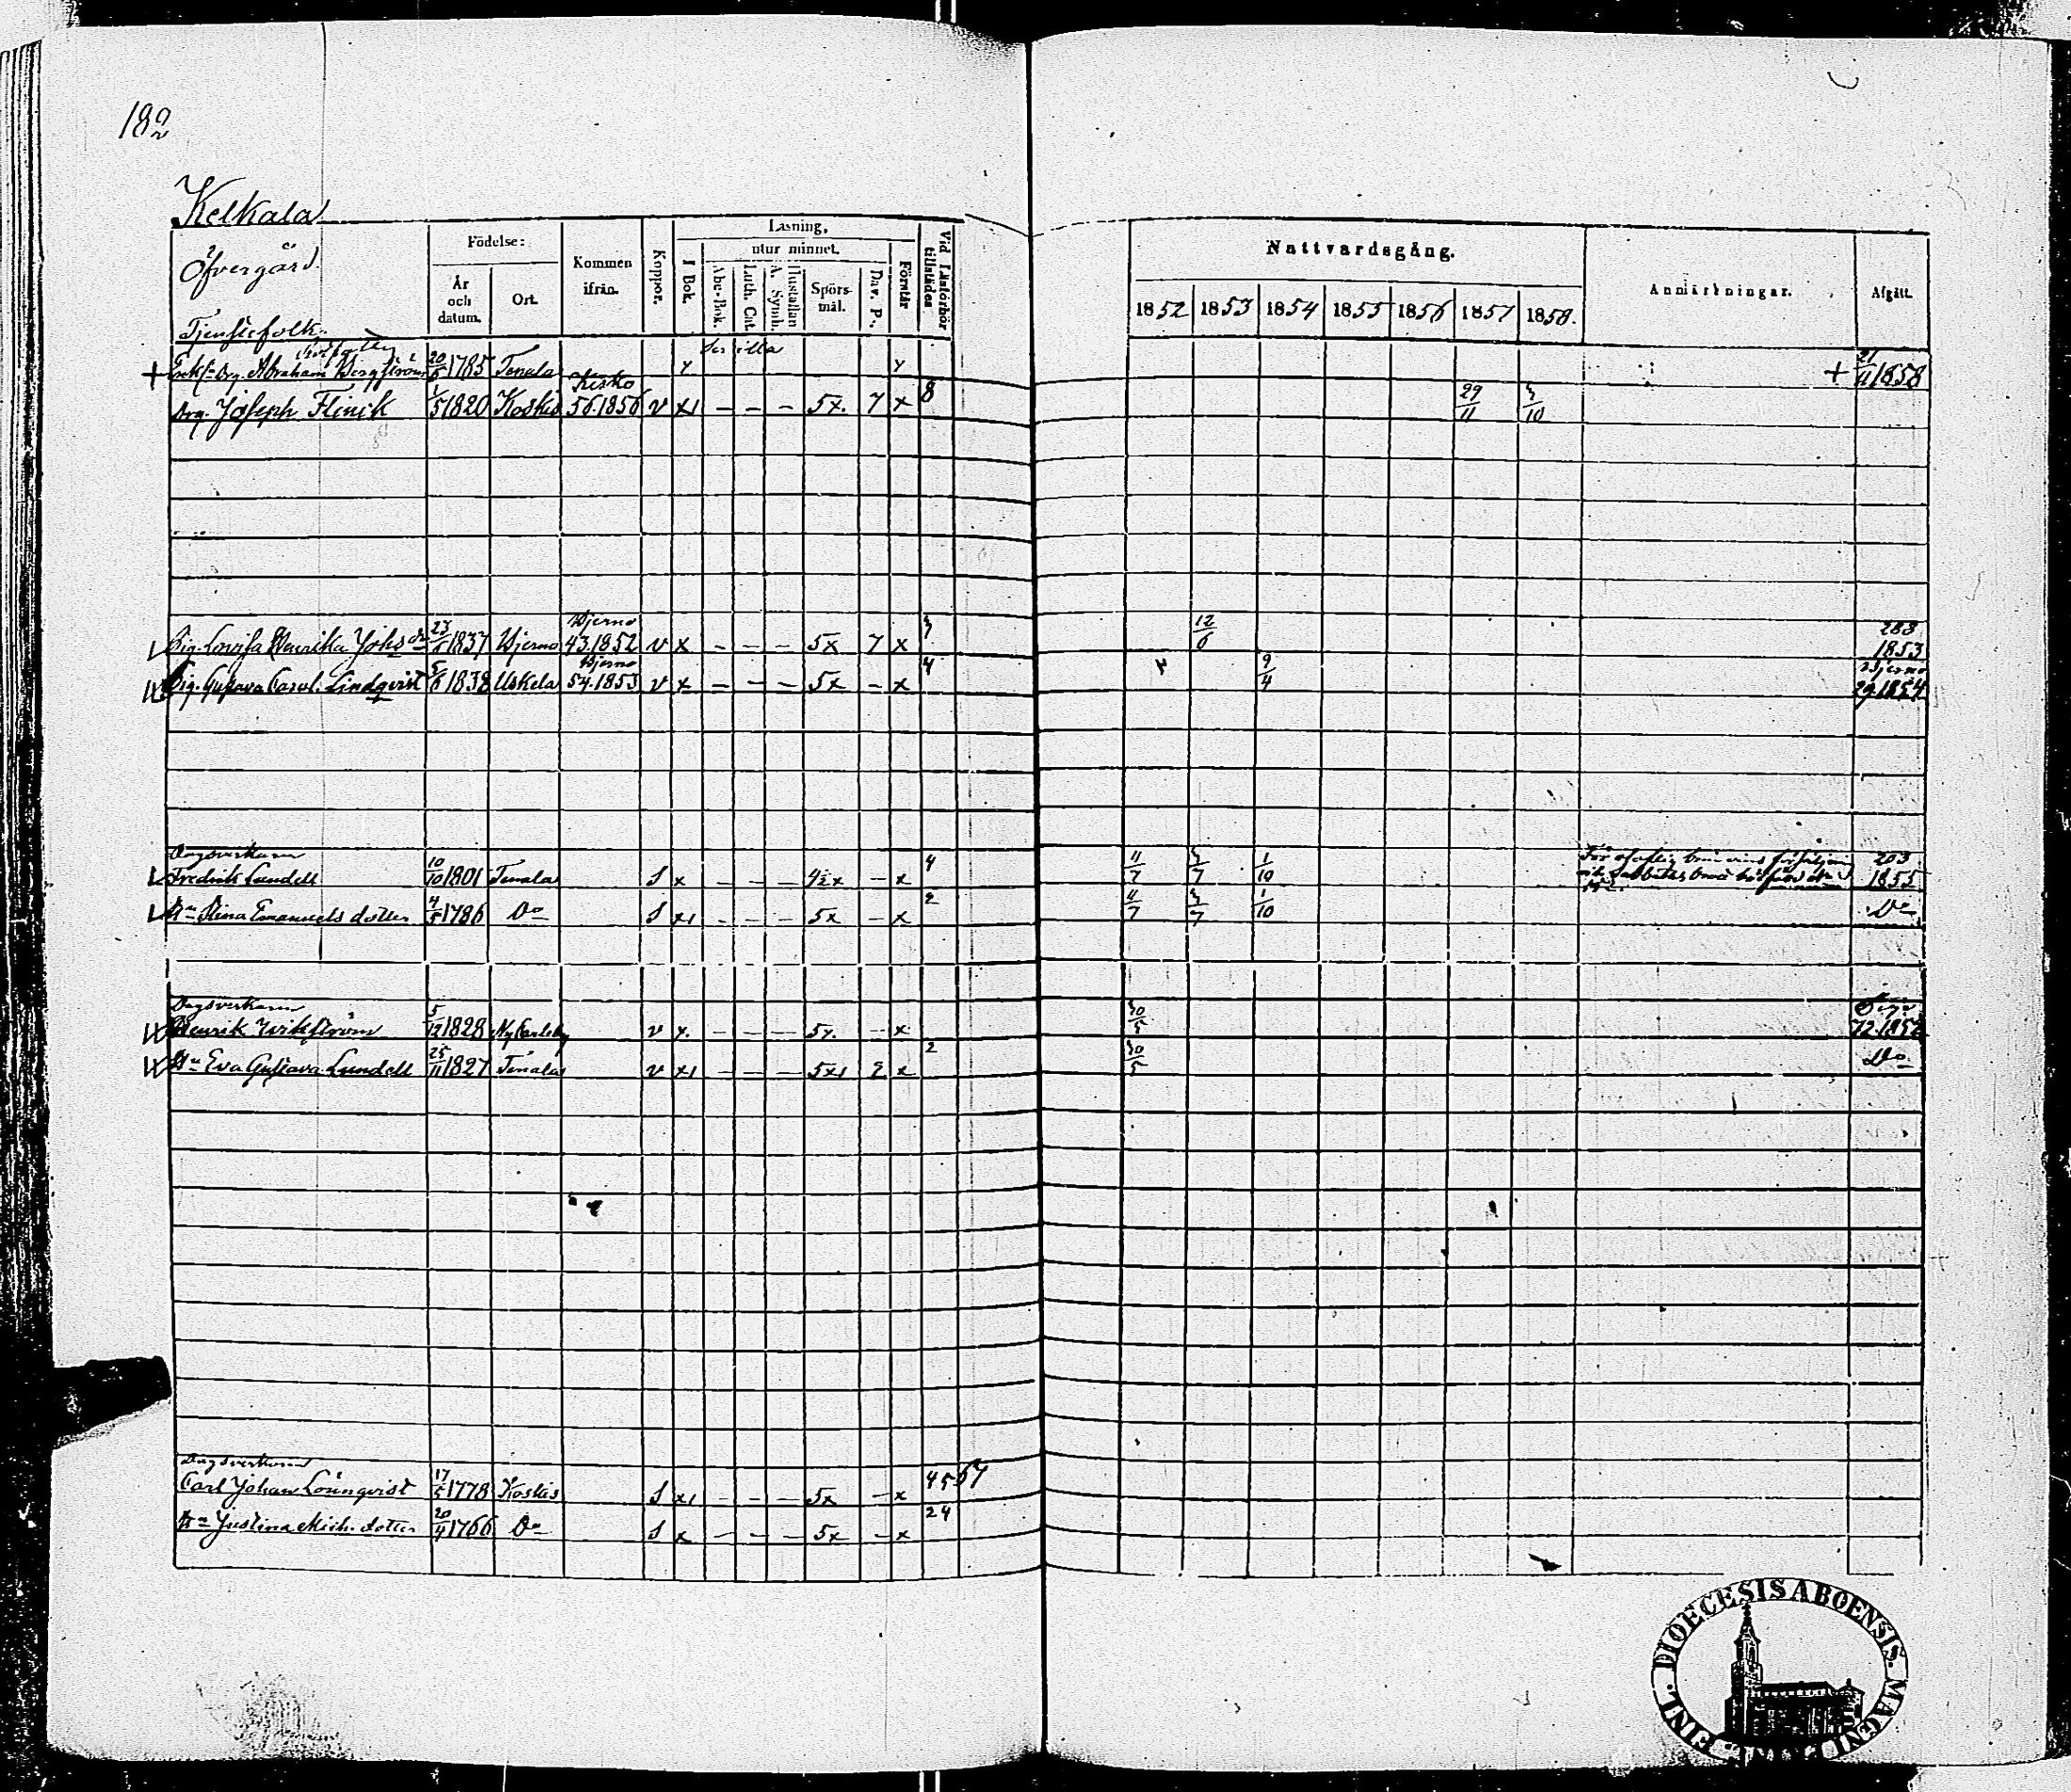 182
Kelkala
Öfvergård.
Tjenstefolk.
Födelse:
År och datum.
Ort.
Kommen ifrån.
Koppor.
Läsning,
I Bok.
utur minnet.
Abc-Bok.
Luth. Cat.
Hustaflan A. Symb.
Spörs-mål.
Dav. Ps.
Förstår
Vid Läsförhör tillstädes
Nattvardsgång.
1852 1853 1854 1855 1856 1857 1858.
Anmärkningar.
Afgått.
+ Enkl. Drg. Abraham Bergström 20/5 1785 Tenala + 21/11 1858
Drg. Joseph Flinik 1/5 1820 Koskis Kisko 56.1856 v x1 – – – 5x. 7 x 8 29/11 3/10
Pig. Lovisa Henrika Johs dr 1837 Bjerno Bjerno 43.1852 v x – – – 5x 7 x 3 12/6 1853
Pig. Gustava Carol. Lindqvist 5/6 1838 Uskela Bjerno 54.1853 v x – – – 5x – x 4 9/4 Bjerno 29.1854
Dagsverkaren
Fredrik Lundell 10/10 1801 Tenala S x – – – 4½x – x 4 11/7 3/7 1/10 203 1855
Hu Stina Emanuels dotter 4/5 1786 Do S x1 – – – 5x – x 2 11/7 3/7 1/10 Do
Dagsverkaren
Henrik Wikström 5/12 1828 Ny Carleby v x. – – – 5x. – x 30/5 72.1852
Hu Eva Gustava Lundell 25/11 1827 Tenala v x1 – – – 5x1 2 x 2 30/5 Do
Dagsverkaren
Carl Johan Lönnqvist 17/5 1778 Koskis S x1 – – – 5x – x 4567
Hu Justina Mich. dotter 20/4 1766 Do S x – – – 5x – x 24
DIOECESIS ABOENSIS. MAGNI DUC. FINL.